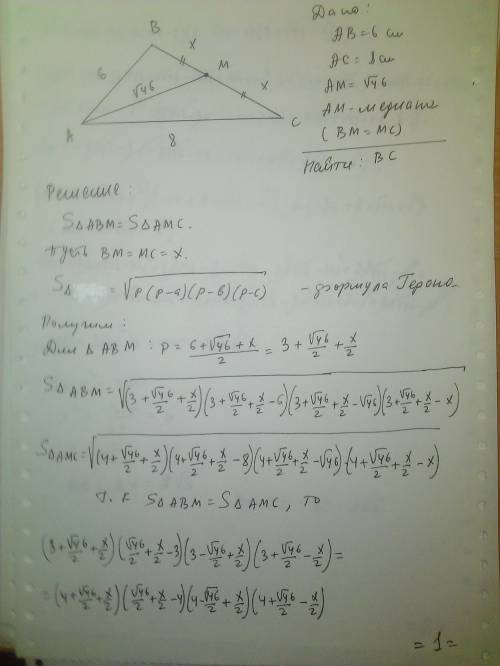 Дано:
AB = 6 см
AC = 8 см
AM = √46
AM - медиана
(BM = MC)
Найти: BC
B
x
M
6
√46
x
A
C
8
Решение:
S△ABM = S△AMC.
Пусть BM = MC = x.
S△ = √(p(p-a)(p-b)(p-c)) - формула Герона.
Получим:
Для △ABM: p = (6+√46+x)/2 = 3 + √46/2 + x/2
S△ABM = √((3+√46/2+x/2)(3+√46/2+x/2-6)(3+√46/2+x/2-√46)(3+√46/2+x/2-x))
S△AMC = √((4+√46/2+x/2)(4+√46/2+x/2-8)(4+√46/2+x/2-√46)·(4+√46/2+x/2-x))
Т.к S△ABM = S△AMC, то
(3+√46/2+x/2)(√46/2+x/2-3)(3-√46/2+x/2)(3+√46/2-x/2) =
= (4+√46/2+x/2)(√46/2+x/2-4)(4-√46/2+x/2)(4+√46/2-x/2)
= 1 =